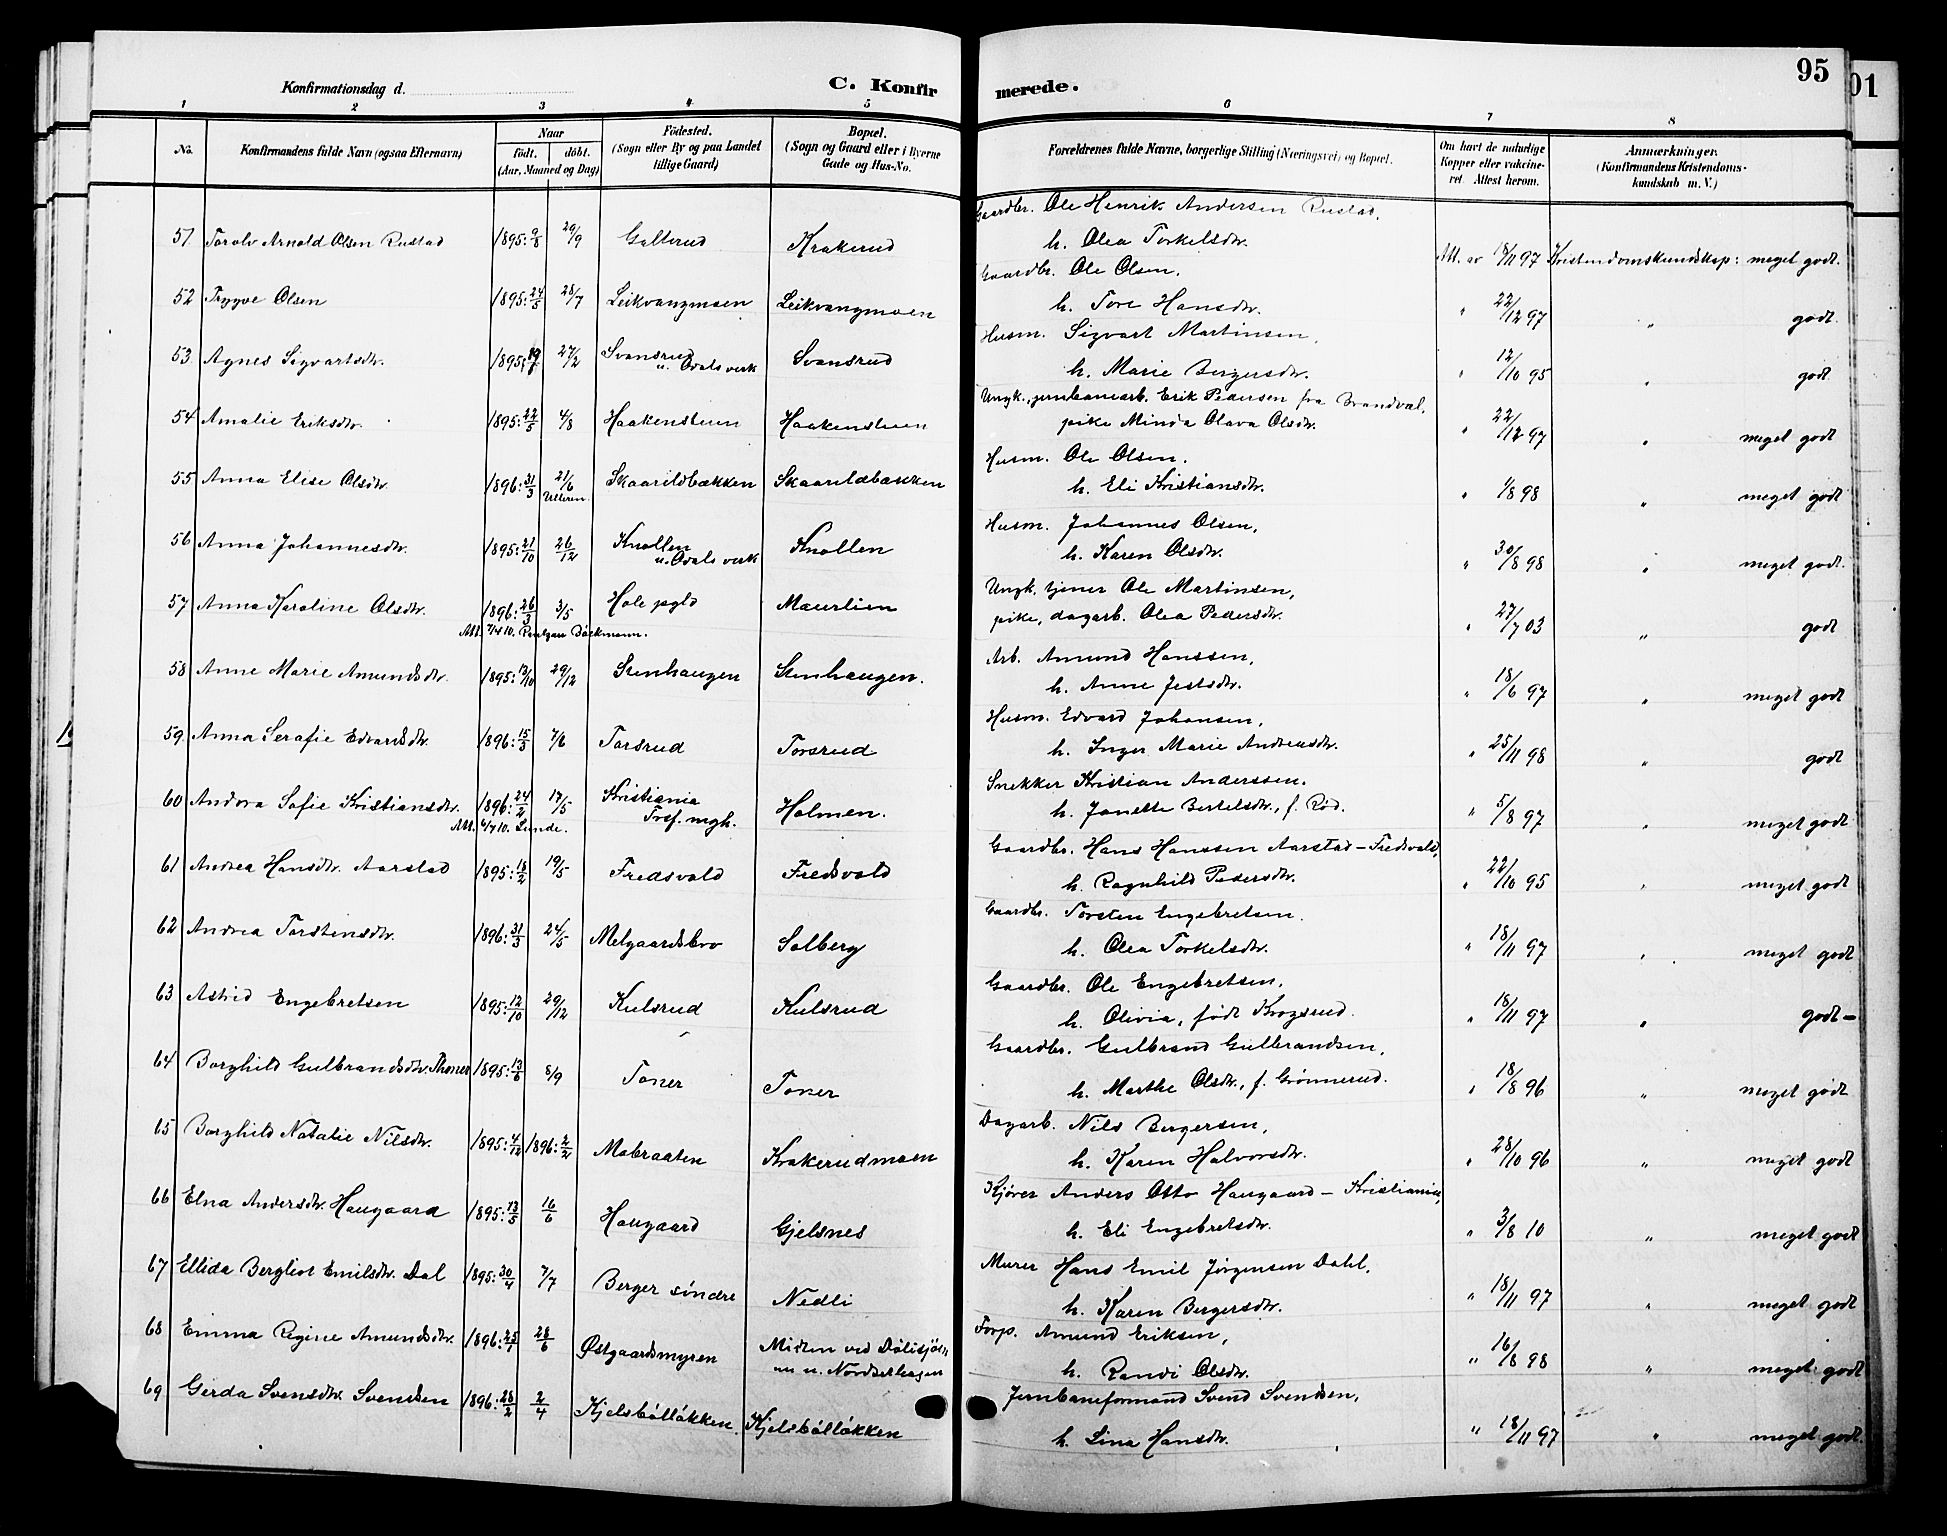 95
01
Konfirmationsdag d.
C. Konfirmerede.
1 2 3 4 5 6 7 8
No.
Konfirmandens fulde Navn (ogsaa Efternavn)
Naar
født. døbt.
(Aar, Maaned og Dag)
Fødested.
(Sogn eller By og paa Landet
tillige Gaard)
Bopæl.
(Sogn og Gaard eller i Byerne
Gade og Hus-No.
Forældrenes fulde Navne, borgerlige Stilling (Næringsvei) og Bopæl.
Om havt de naturlige
Kopper eller vakcine-
ret. Attest herom.
Anmærkninger.
(Konfirmandens Kristendoms-
kundskab m. V.)
Gaardbr. Ole Henrik Andersen Rustad,
51 Torolv Arnold Olsen Rustad 1895: 9/8 29/9 Galterud Krakerud h. Olea Torkelsdtr. Att. av 18/11 97 Kristendomskundskap: meget godt.
Gaardbr. Ole Olsen.
52 Trygve Olsen 1895: 24/5 28/7 Leikvangmoen Leikvangmoen h. Tore Hansdtr. " 22/12 97 " godt.
Husm. Sigvart Martinsen,
53 Agnes Sigvartsdtr. 1895: 27/2 Svansrud u. Odals verk Svansrud h. Marie Bergersdtr. " 12/10 95 " godt
Ungk., jernbanearb. Erik Pedersen fra Brandval,
54 Amalie Eriksdtr. 1895: 22/5 4/8 Haakensteen Haakensteen pike Minda Olava Olsdtr. " 22/12 97 " meget godt
Husm. Ole Olsen.
55 Anna Elise Olsdtr. 1896: 31/3 21/6 Ulleren Skaarildbækken Skaarildbækken h. Eli Kristiansdtr. " 1/8 98 " meget godt
Husm. Johannes Olsen,
56 Anna Johannesdtr. 1895: 21/10 26/12 Knollen u. Odals verk Knollen h. Karen Olsdtr. " 30/8 98 " meget godt.
Ungk. tjener Ole Martinsen,
57 Anna Karoline Olsdtr. 1896: 26/3 3/5 Hole pgld Maurlien pike, dagarb. Olea Pedersdtr. " 27/7 03 " godt
Att. 7/4 10.
Arb. Amund Hanssen,
58 Anne Marie Amundsdtr. 1895: 13/10 29/12 Stenhaugen Stenhaugen. h. Anne Jestsdtr. " 18/6 97 " meget godt
Husm. Edvard Johansen,
59. Anna Serafie Edvardsdtr. 1896: 15/3 7/6 Torsrud Torsrud h. Inger Marie Andreasdtr. " 25/11 98 " godt
Snekker Kristian Anderssen.
60 Andora Sofie Kristiansdtr. 1896: 24/2 17/5 Kristiania Trsf. mgh. Holmen. h. Janette Bertelsdtr., f. Rød. " 5/8 97 " meget godt
Att. 6/4 10. Lunde.
Gaardbr. Hans Hanssen Aarstad – Fredsvold,
61 Andrea Hansdtr. Aarstad 1895: 18/2 19/5 Fredsvold Fredsvold h. Ragnhild Pedersdtr. " 22/10 95 " meget godt
Gaardbr. Torsten Engebretsen.
62 Andrea Torstensdtr. 1896: 31/3 24/5 Melgaardsbro Solberg h. Olea Torkelsdtr. " 18/11 97 " meget godt
Gaardbr. Ole Engebretsen,
63 Astrid Engebretsen 1895: 12/10 29/12 Kulsrud Kulsrud h. Olivia, født Krogsrud. " 18/11 97 " godt –
Gaardbr. Gulbrand Gulbrandsen,
64 Borghild Gulbrandsdtr. Thoner 1895: 13/6 8/9 Toner Toner h. Marthe Olsdtr., f. Grønnerud. " 18/8 96 " meget godt
Dagarb. Nils Bergersen,
65 Borghild Natalie Nilsdtr. 1895: 4/12 1896: 2/2 Mobraaten Krakerudmoen h. Karen Halvorsdtr. " 28/10 96 " meget godt
Kjører Anders Otto Haugaard – Kristiania,
66 Elna Andersdtr. Haugaard 1895: 13/5 16/6 Haugaard Gjelsnes h. Eli Engebretsdtr. " 3/8 10 " meget godt
Murer Hans Emil Jørgensen Dahl,
67 Ellida Bergliot Emilsdtr. Dal 1895: 30/4 7/7 Berger søndre Nedli h. Karen Bergersdtr. " 18/11 97 " meget godt
Forp. Amund Eriksen,
68 Emma Regine Amundsdtr. 1896: 25/1 28/6 Østgaardsmyren Midten ved Dølisjøen u. Nordsethagen h. Randi Olsdtr. " 16/8 98 " meget godt
Jernbaneformand Svend Svendsen,
69 Gerda Svensdtr. Svendsen 1896: 28/2 2/4 Kjelsbølløkken. Kjelsbølløkken h. Lina Hansdtr. " 18/11 97 " meget godt.